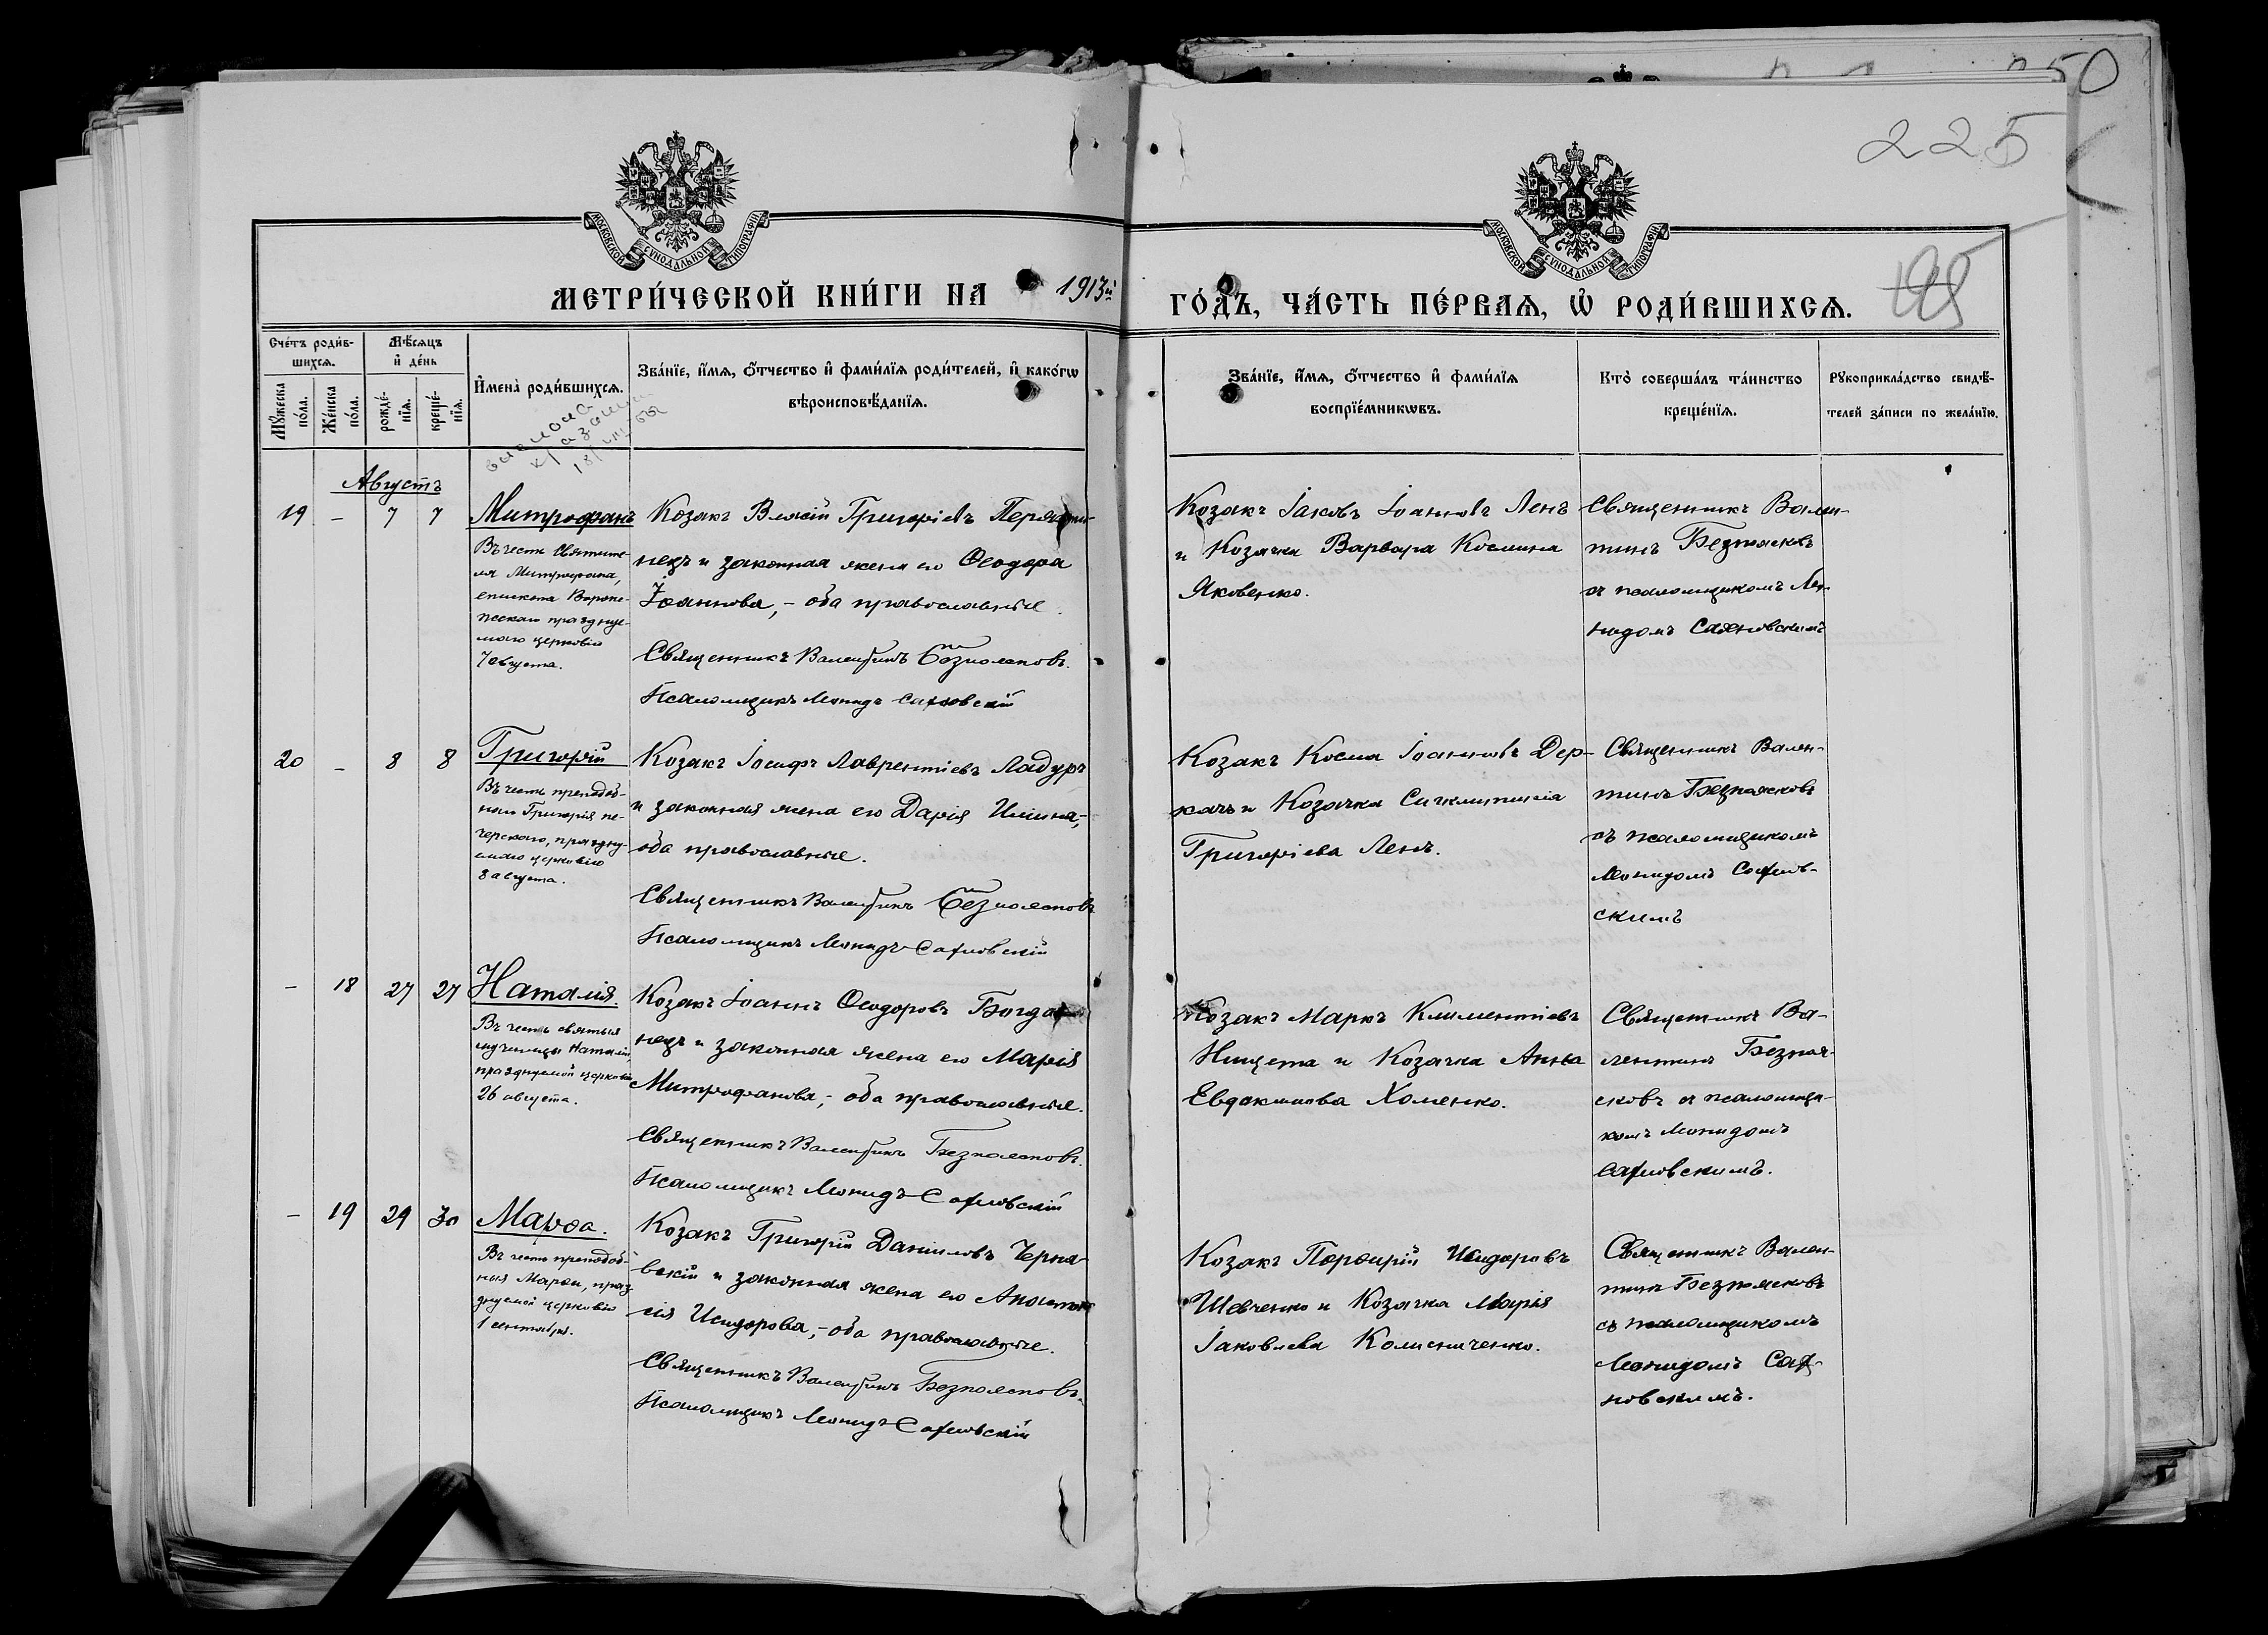 50
225
МОСКОВСКОЙ СУНОДАЛЬНОЙ ТИПОГРАФІИ
МОСКОВСКОЙ СУНОДАЛЬНОЙ ТИПОГРАФІИ
МЕТРИ́ЧЕСКОЙ КНИ́ГИ НА 1913й
ГО́ДЪ, ЧА́СТЬ ПЕ́РВАѦ, Ѡ҆ РОДИ́ВШИХСѦ.
Сче́тъ роди́в-
шихсѧ.
Мѣ́сѧцъ
и҆ де́нь
Мꙋ́жеска
по́ла.
Же́нска
по́ла.
рожде́-
нїѧ.
креще́-
нїѧ.
И҆мена̀ роди́вшихсѧ.
Зва́нїе, и҆́мѧ, ѻ҆́тчество и҆ фами́лїѧ роди́телей, и҆ како́гѡ
вѣроисповѣ́данїѧ.
Зва́нїе, и҆́мѧ, ѻ҆́тчество и҆ фами́лїѧ
воспрїе́мникѡвъ.
Кто̀ соверша́лъ та́инство
креще́нїѧ.
Рꙋкоприкла́дство свидѣ́-
телей за́писи по жела́нїю.
Августъ
19 – 7 7
Митрофанъ
Въ честь Святите-
ля Митрофана,
епископа Вороне-
жскаго праздну-
емаго церковію
7 августа.
Козакъ Власій Григоріевъ Перяти-
нецъ и законная жена его Ѳеодора
Іоаннова, – оба православные.
Священникъ Валентинъ Безпоясковъ.
Псаломщикъ Леонидъ
Козакъ Іаковъ Іоанновъ Ленъ
и Козачка Варвара Космина
Яковенко.
Священникъ Вален-
тинъ Безпоясковъ
съ псаломщикомъ Лео-
нидомъ
20 – 8 8
Григорій
Въ честь преподоб-
наго Григорія пе-
черскаго, праздну-
емаго церковію
8 августа.
Козакъ Іосифъ Лаврентіевъ Ладуръ
и законная жена его Дарія Иліина,
оба православные.
Священникъ Валентинъ Безпоясковъ
Псаломщикъ Леонидъ
Козакъ Косма Іоанновъ Дер-
качъ и Козачка Сигклитикія
Григоріева Ленъ.
Священникъ Вален-
тинъ Безпоясковъ
съ псаломщикомъ
Леонидомъ
скимъ
– 18 27 27
Наталія.
Въ честь святыя
мученицы Наталіи
празднуемой церковію
26 августа.
Козакъ Іоаннъ Ѳеодоровъ Богда-
нецъ и законная жена его Марія
Митрофанова, – оба православные.
Священникъ Валентинъ Безпоясковъ.
Псаломщикъ Леонидъ
Козакъ Маркъ Климентіевъ
Нищета и Козачка Анна
Евдокимова Хоменко.
Священникъ Ва-
лентинъ Безпоя-
сковъ съ псаломщи-
комъ Леонидомъ
– 19 29 30
Марѳа.
Въ честь преподоб-
ныя Марѳы, праз-
днуемой церковію
1 сентября.
Козакъ Григорій Даніиловъ Черня-
вскій и законная жена его Анаста-
сія Исидорова, – оба православные.
Священникъ Валентинъ Безпоясковъ.
Псаломщикъ Леонидъ
Козакъ Порфирій Исидоровъ
Шевченко и Козачка Марія
Іаковлева Колисниченко.
Священникъ Вален-
тинъ Безпоясковъ
съ псаломщикомъ
Леонидомъ
новскимъ.